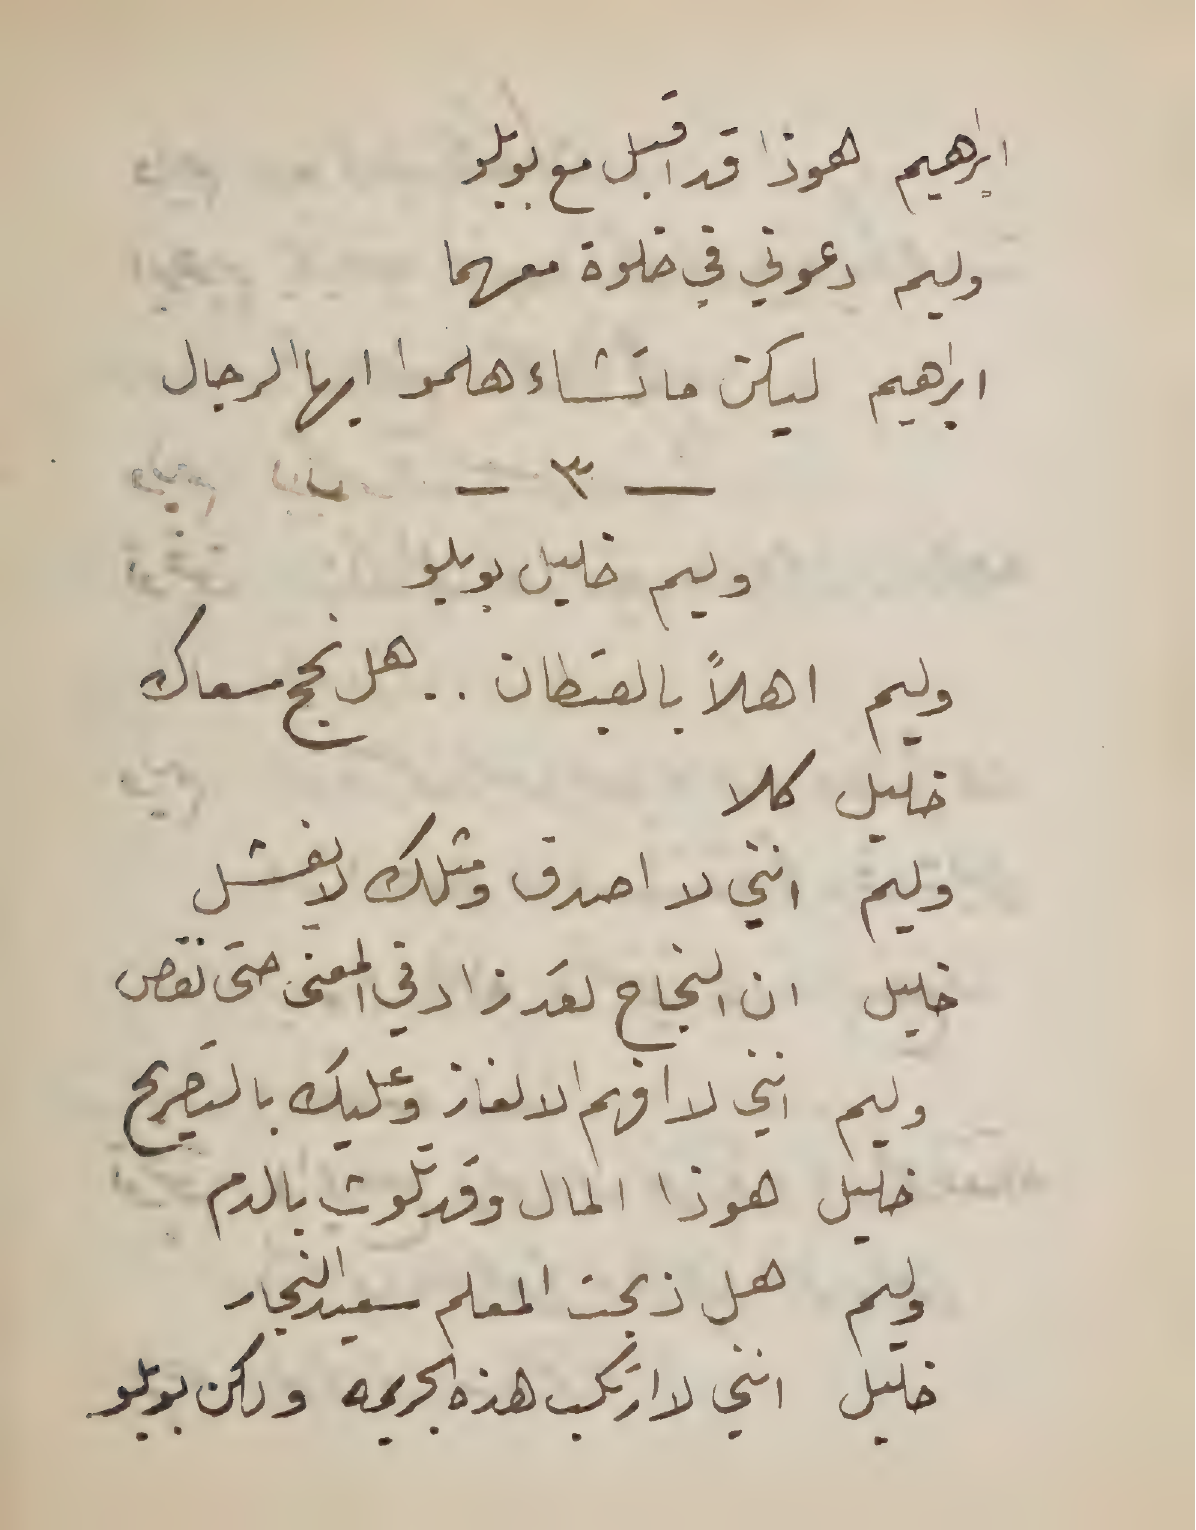 ابراهيم هوذا قد اقبل مع بوبلو
وليم دعوني في خلوة معهما
ابراهيم ليكن ما تشاء هلموا ايها الرجال
— ٣ —
وليم خليل بوبلو
وليم اهلاً بالقبطان .. هل نجح مسعاك
خليل كلا
وليم انني لا اصدق ومثلك لا يفشل
خليل ان النجاح لقد زاد في المعنى حتى نقص
وليم انني لا افهم الالغاز وعليك بالتصريح
خليل هوذا المال وقد تلوث بالدم
وليم هل ذبحت المعلم سعيد النجار
خليل انني لا ارتكب هذه الجريمه ولكن بوبلو